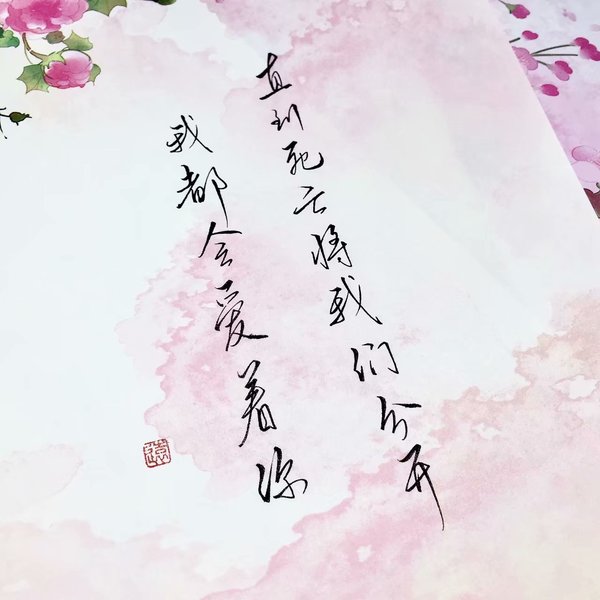 直到死亡将我们分开
我都会爱着你
远